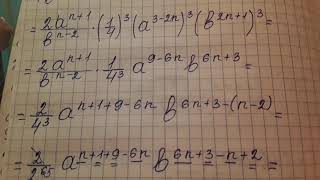 = 2a^{n+1}/b^{n-2} · (1/4)^3 (a^{3-2n})^3 (b^{2n+1})^3 =
= 2a^{n+1}/b^{n-2} · 1/4^3 a^{9-6n} b^{6n+3} =
= 2/4^3 a^{n+1+9-6n} b^{6n+3-(n-2)} =
= 2/2^6 a^{n+1+9-6n} b^{6n+3-n+2} =